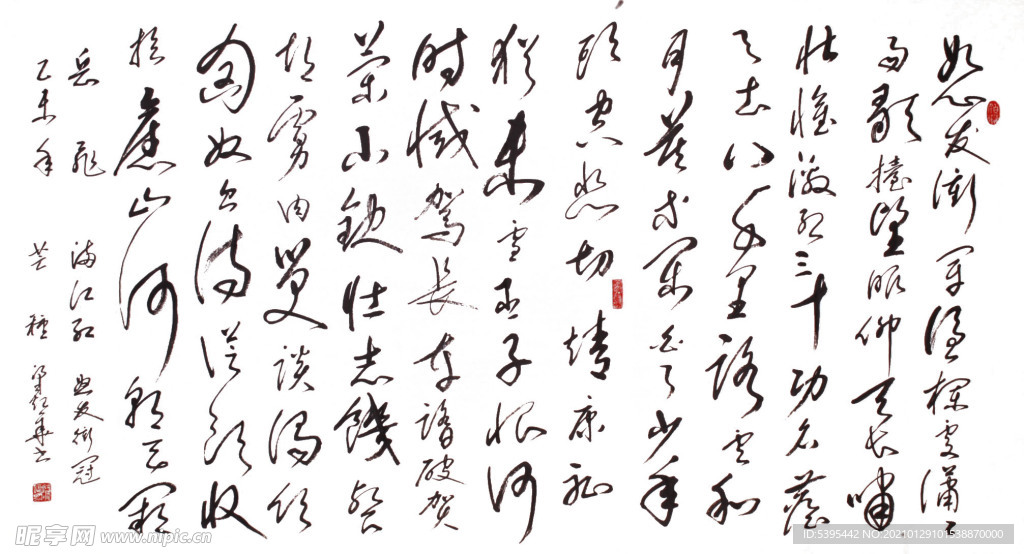 怒发衝冠凭栏处潇潇
雨歇擡望眼仰天长啸
壮怀激烈三十功名尘
与土八千里路云和
月莫等闲白了少年
头空悲切靖康耻
犹未雪臣子恨何
时灭驾長车踏破贺
兰山缺壮志饑餐
胡虏肉笑谈渴饮
匈奴血待从头收
拾舊山河朝天阙
岳飛 满江红 怒发衝冠
乙未年 芒種
昵享网 www.nipic.cn
ID:5395442 NO:20210129101538870000